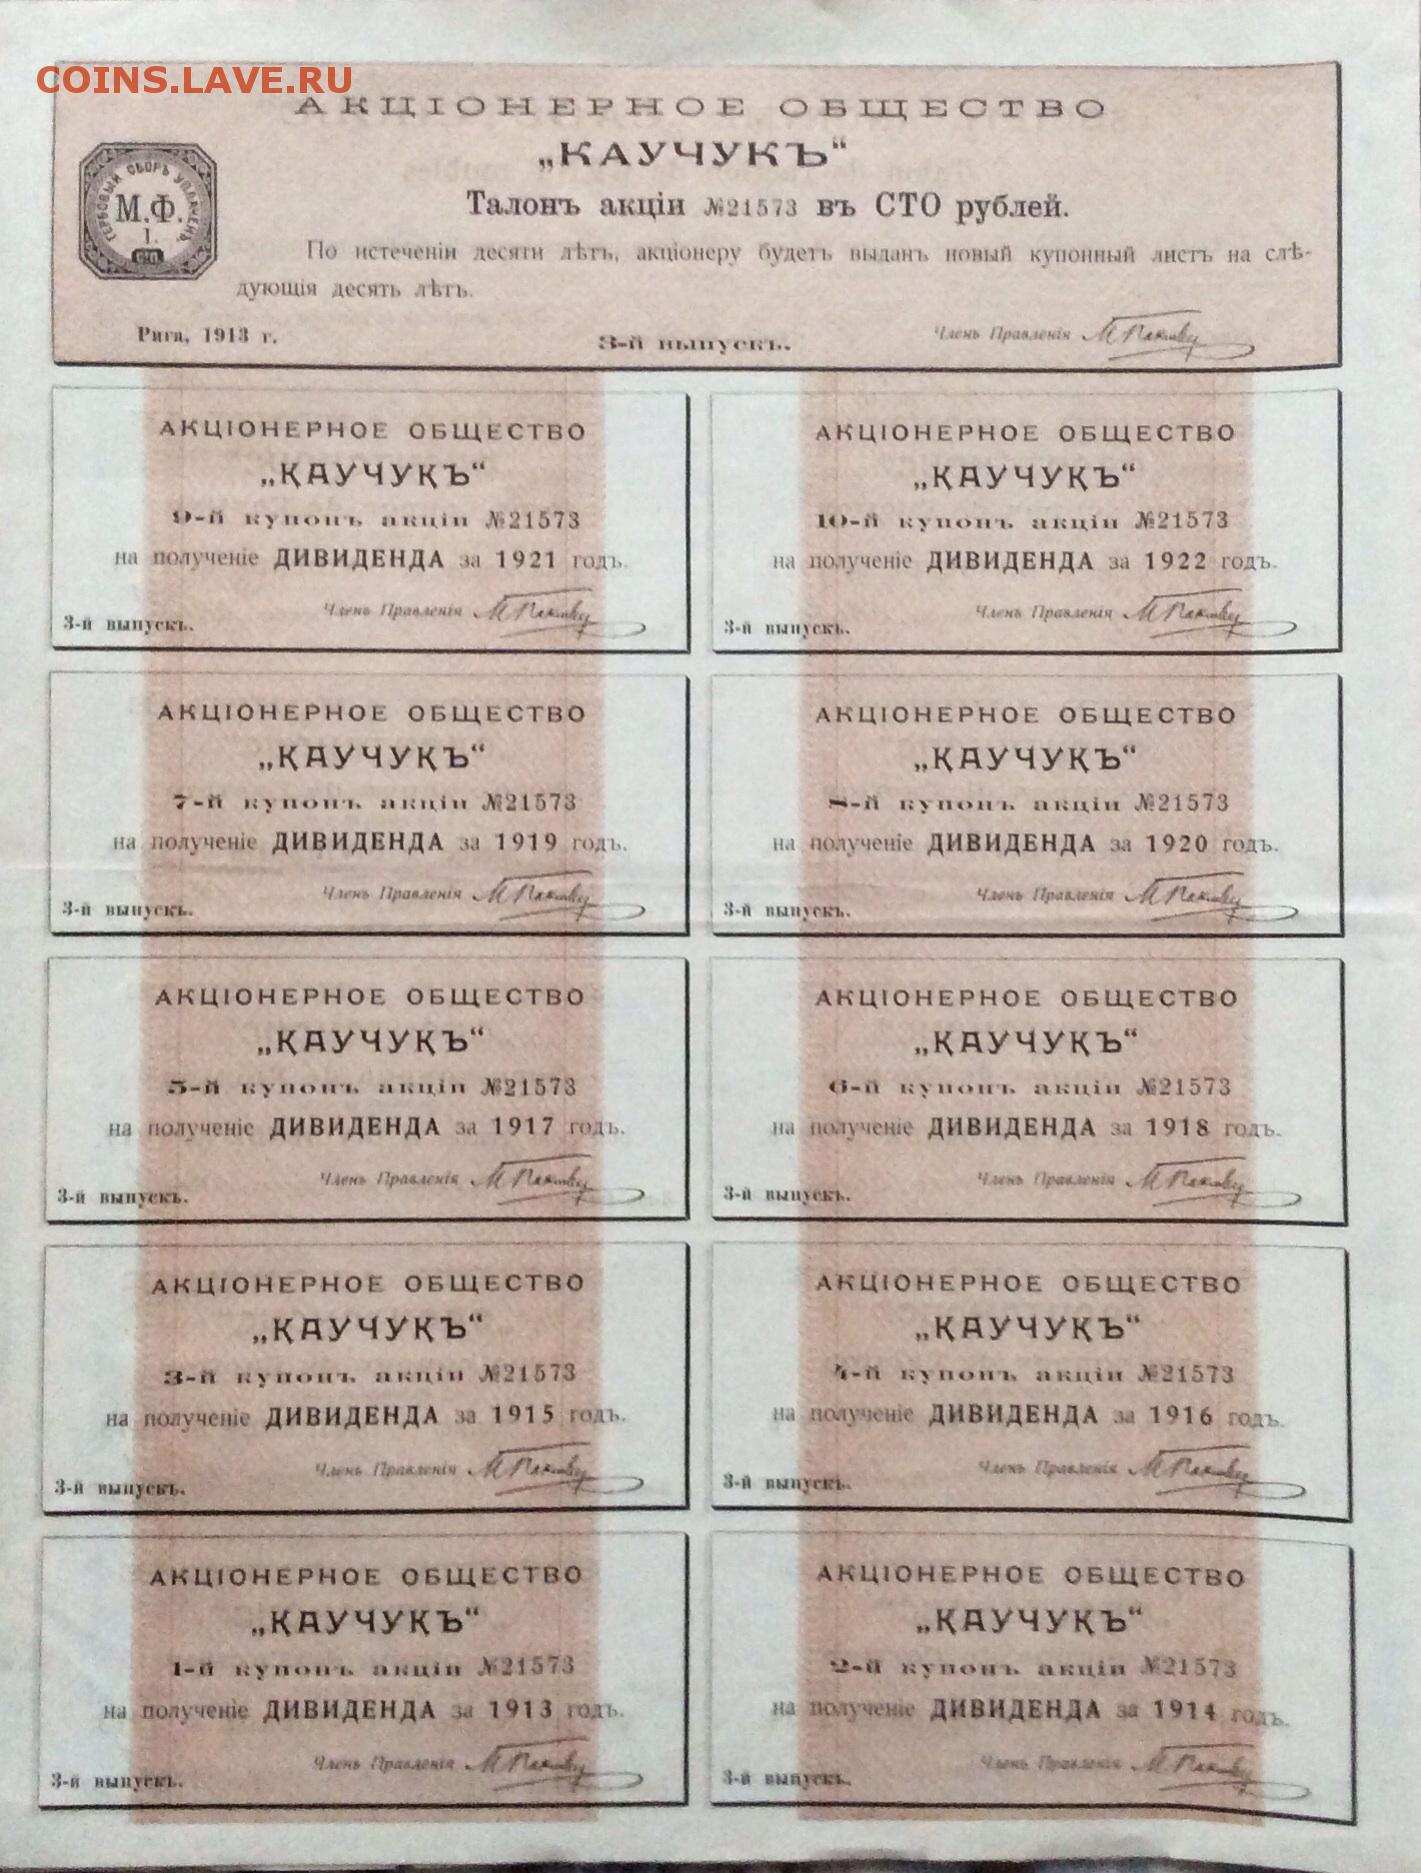 COINS.LAVE.RU
АКЦІОНЕРНОЕ ОБЩЕСТВО
„КАУЧУКЪ“
ГЕРБОВЫЙ СБОРЪ УПЛАЧЕНЪ
М.Ф.
1.
Талонъ акціи №21573 въ СТО рублей.
По истеченіи десяти лѣтъ, акціонеру будетъ выданъ новый купонный листъ на слѣ-
дующія десять лѣтъ.
Рига, 1913 г.
3-й выпускъ.
Членъ Правленія
АКЦІОНЕРНОЕ ОБЩЕСТВО
„КАУЧУКЪ“
9-й купонъ акціи №21573
на полученіе ДИВИДЕНДА за 1921 годъ.
Членъ Правленія
3-й выпускъ.
АКЦІОНЕРНОЕ ОБЩЕСТВО
„КАУЧУКЪ“
10-й купонъ акціи №21573
на полученіе ДИВИДЕНДА за 1922 годъ.
Членъ Правленія
3-й выпускъ.
АКЦІОНЕРНОЕ ОБЩЕСТВО
„КАУЧУКЪ“
7-й купонъ акціи №21573
на полученіе ДИВИДЕНДА за 1919 годъ.
Членъ Правленія
3-й выпускъ.
АКЦІОНЕРНОЕ ОБЩЕСТВО
„КАУЧУКЪ“
8-й купонъ акціи №21573
на полученіе ДИВИДЕНДА за 1920 годъ.
Членъ Правленія
3-й выпускъ.
АКЦІОНЕРНОЕ ОБЩЕСТВО
„КАУЧУКЪ“
5-й купонъ акціи №21573
на полученіе ДИВИДЕНДА за 1917 годъ.
Членъ Правленія
3-й выпускъ.
АКЦІОНЕРНОЕ ОБЩЕСТВО
„КАУЧУКЪ“
6-й купонъ акціи №21573
на полученіе ДИВИДЕНДА за 1918 годъ.
Членъ Правленія
3-й выпускъ.
АКЦІОНЕРНОЕ ОБЩЕСТВО
„КАУЧУКЪ“
3-й купонъ акціи №21573
на полученіе ДИВИДЕНДА за 1915 годъ.
Членъ Правленія
3-й выпускъ.
АКЦІОНЕРНОЕ ОБЩЕСТВО
„КАУЧУКЪ“
4-й купонъ акціи №21573
на полученіе ДИВИДЕНДА за 1916 годъ.
Членъ Правленія
3-й выпускъ.
АКЦІОНЕРНОЕ ОБЩЕСТВО
„КАУЧУКЪ“
1-й купонъ акціи №21573
на полученіе ДИВИДЕНДА за 1913 годъ.
Членъ Правленія
3-й выпускъ.
АКЦІОНЕРНОЕ ОБЩЕСТВО
„КАУЧУКЪ“
2-й купонъ акціи №21573
на полученіе ДИВИДЕНДА за 1914 годъ.
Членъ Правленія
3-й выпускъ.